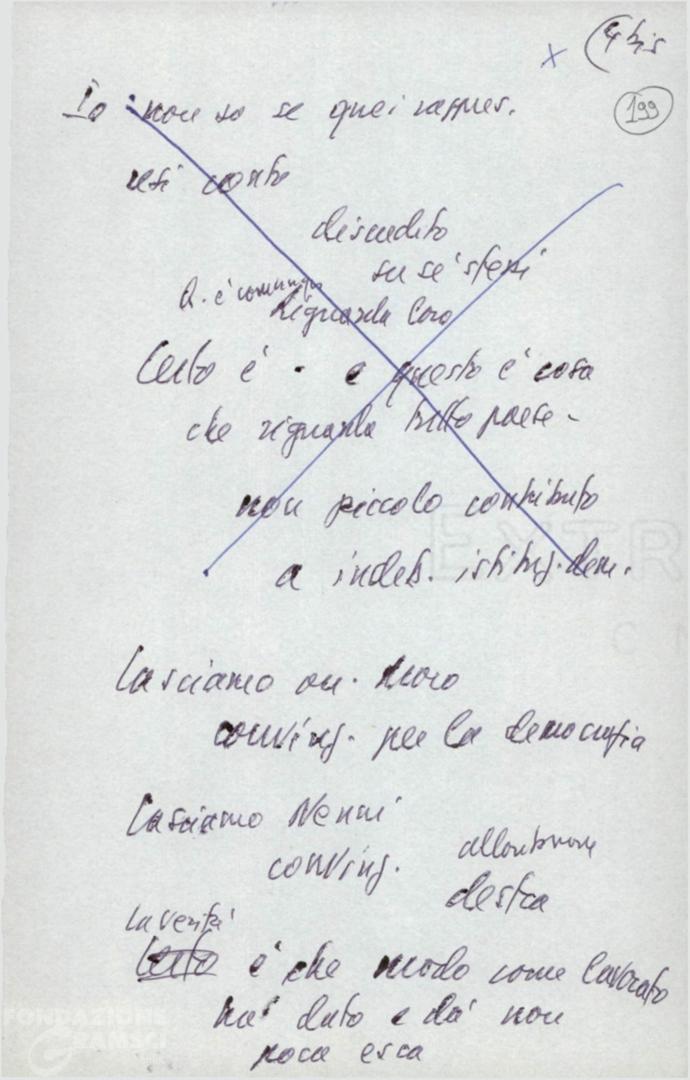 4 bis
x
199
Io non so se quei rappres.
resi conto
discredito
su se' stessi
Q. è comunque
Riguarda loro
Certo è - e questo è cosa
che riguarda tutto paese -
non piccolo contributo
a indeb. istituz. dem.
Lasciamo on. Moro
conving. per la democrazia
Lasciamo Nenni
conving. allontanare
destra
La verità
Certo è che modo come lavorato
ha dato e dà non
poca esca
FONDAZIONE
GRAMSCI
EXTR